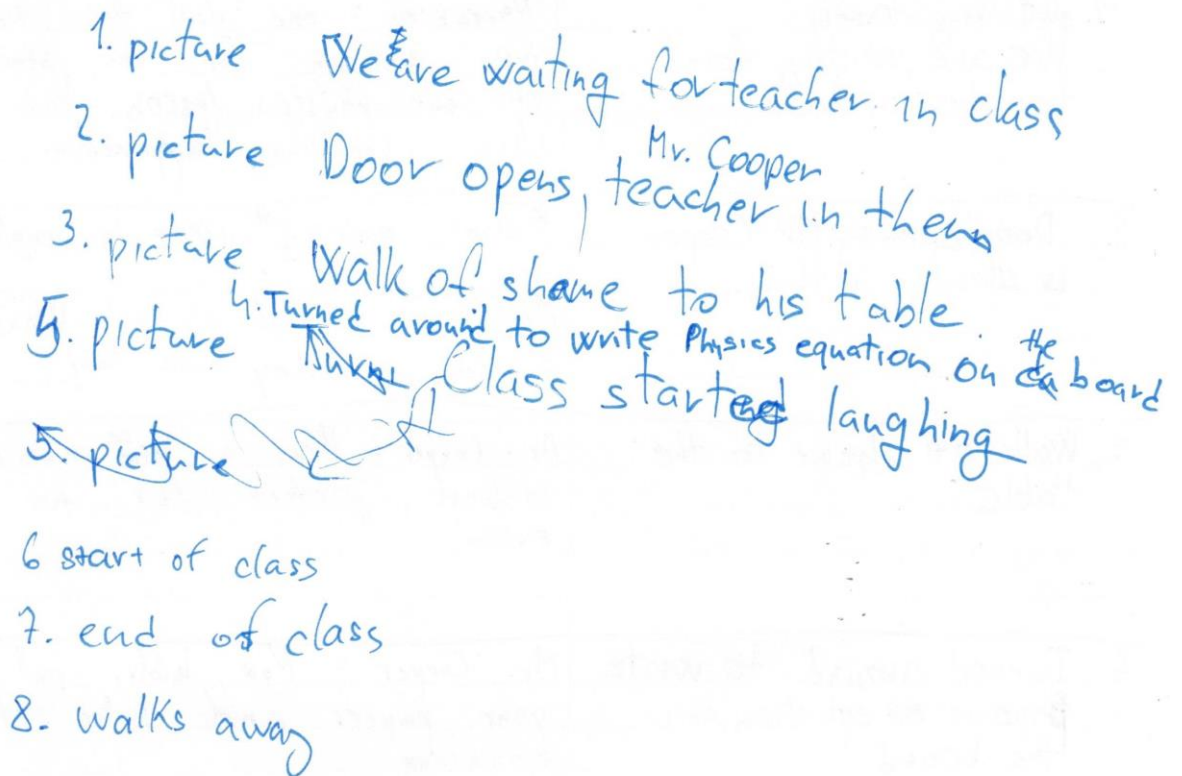 1. picture We are waiting for teacher in class
2. picture Door opens, teacher in them
Mr. Cooper
3. picture Walk of shame to his table.
4. Turned around to write Physics equation on the board
5. picture Class started laughing
5. picture
6 start of class
7. end of class
8. walks away